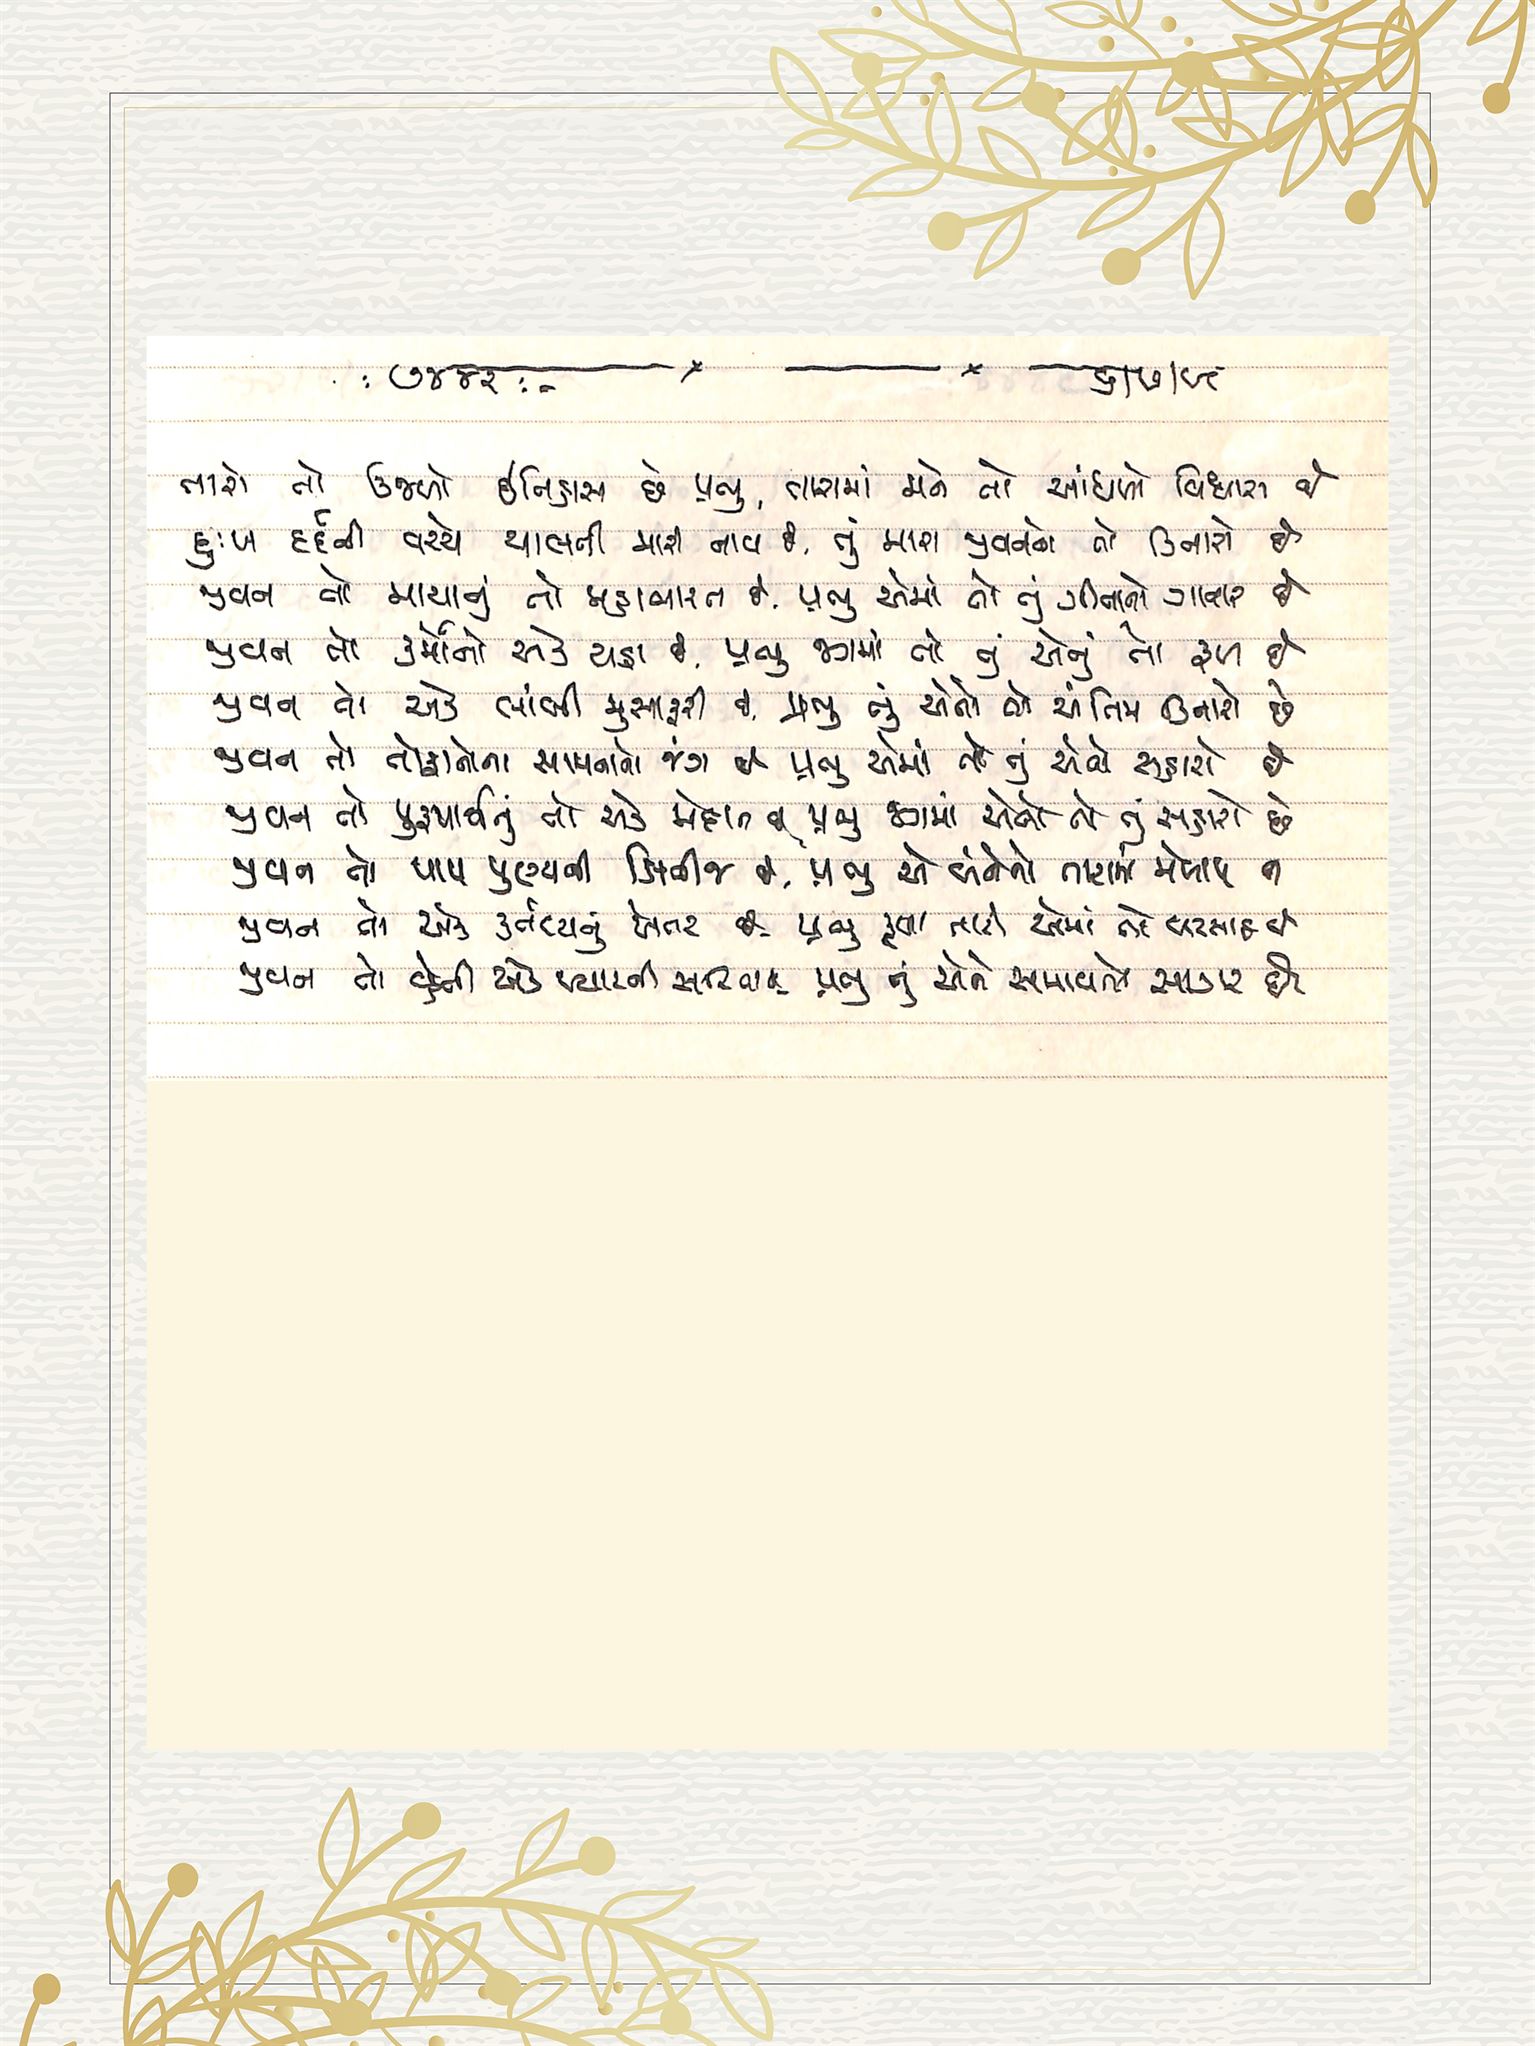 :૭૪૪૨:-
તારો તો ઉજળો ઈતિહાસ છે પ્રભુ, તારામાં મને તો આંધળો વિશ્વાસ છે
દુઃખ દર્દની વચ્ચે ચાલતી મારી નાવ છે, તું મારા જીવનનો તો કિનારો છે
જીવન તો માયાનું તો મહાભારત છે, પ્રભુ એમાં તો તું ગીતાનો છે
જીવન તો કર્મોનો એક યજ્ઞ છે, પ્રભુ જગમાં તો તું એનું તો ફળ છે
જીવન તો એક લાંબી મુસાફરી છે, પ્રભુ તું એનો તો અંતિમ કિનારો છે
જીવન તો તોફાનોના સામનાનો જંગ છે પ્રભુ એમાં તો તું એનો સહારો છે
જીવન તો પુરૂષાર્થનું તો એક મેદાન છે, પ્રભુ જગમાં એનો તો તું સહારો છે
જીવન તો પાપ પુણ્યની ક્ષિતીજ છે, પ્રભુ એ બંનેનો તારામાં મેળાપ છે
જીવન તો એક કર્તવ્યનું ખેતર છે, પ્રભુ કૃપા તારી એમાં તો વરસાદ છે
જીવન તો વહેતી એક પ્યારની સરિતા છે, પ્રભુ તું એને સમાવતો સાગર છે